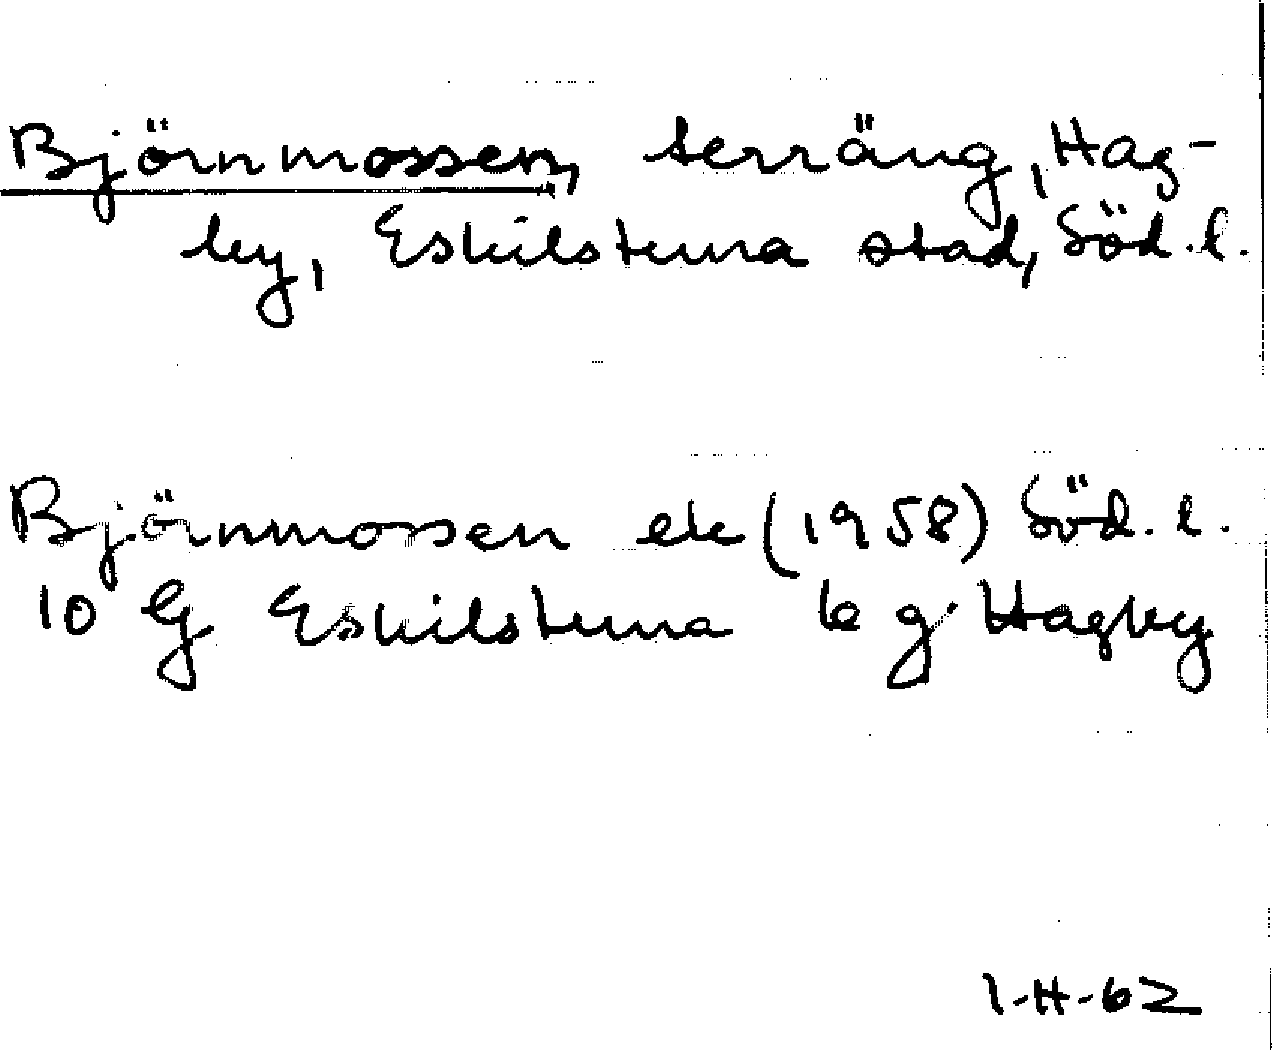 Björnmossen, terräng, Hag-
by, Eskilstuna stad, Söd. l.
Björnmossen ek (1958) Söd. l.
10 G Eskilstuna 6 e g Hagby
1-H-62